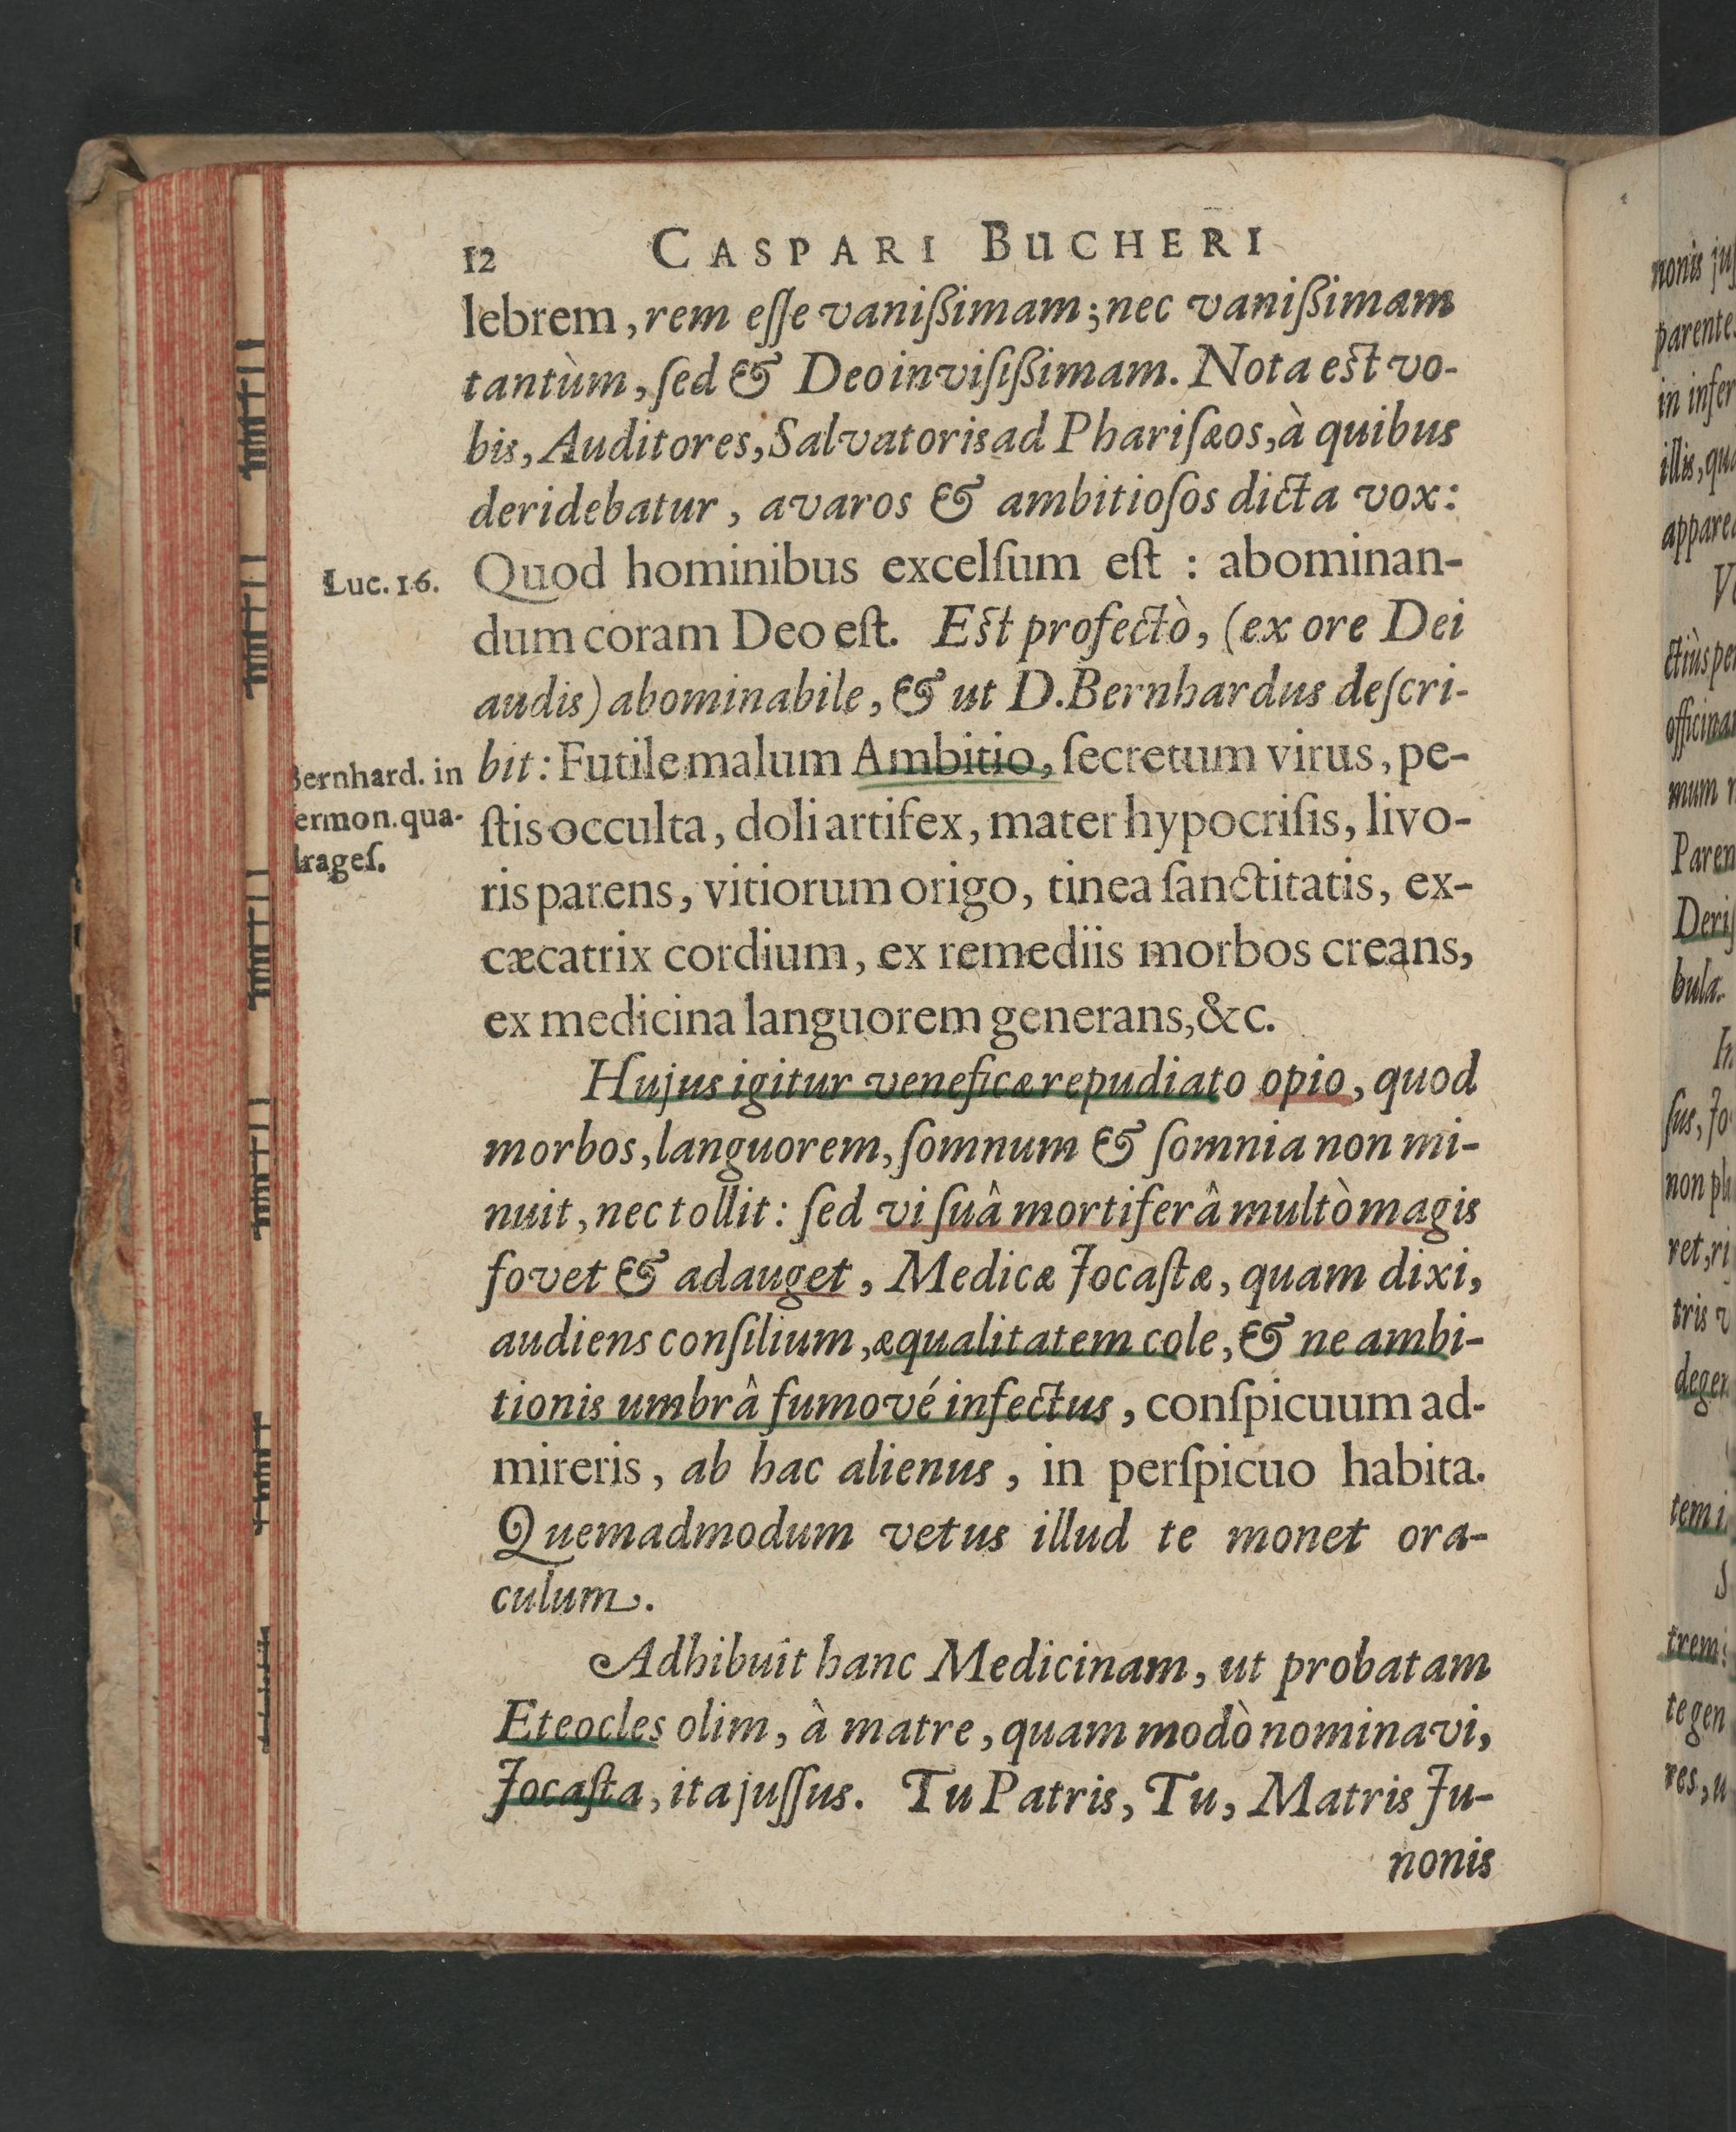 12 CASPARI BUCHERI
lebrem, rem eſſe vanißimam; nec vanißimam
tantùm, ſed & Deo inviſißimam. Nota est vo-
bis, Auditores, Salvatoris ad Phariſæos, à quibus
deridebatur, avaros & ambitioſos dicta vox:
Luc. 16.
Quod hominibus excelſum eſt : abominan-
dum coram Deo eſt. Est profectò, (ex ore Dei
audis) abominabile, & ut D. Bernhardus deſcri-
Bernhard. in
ermon. qua-
drageſ.
bit: Futile malum Ambitio, ſecretum virus, pe-
ſtis occulta, doli artifex, mater hypocriſis, livo-
ris parens, vitiorum origo, tinea ſanctitatis, ex-
cæcatrix cordium, ex remediis morbos creans,
ex medicina languorem generans, &c.
Hujus igitur veneficæ repudiato opio, quod
morbos, languorem, ſomnum & ſomnia non mi-
nuit, nec tollit: ſed vi ſuâ mortiferâ multò magis
fovet & adauget, Medicæ Jocaſtæ, quam dixi,
audiens conſilium, æqualitatem cole, & ne ambi-
tionis umbrâ fumové infectus, conſpicuum ad-
mireris, ab hac alienus, in perſpicuo habita.
Quemadmodum vetus illud te monet ora-
culum.
Adhibuit hanc Medicinam, ut probatam
Eteocles olim, à matre, quam modò nominavi,
Jocaſta, ita juſſus. Tu Patris, Tu, Matris Ju-
nonis
nonis juſ
parentes
in infer
illis, qua
appare
ctiùs per
officina
mum
Paren
Deriſ
bula.
In
ſus, Jo
non pl
ret, ri
tris v
degen
tem i
trem
te gen
res, u